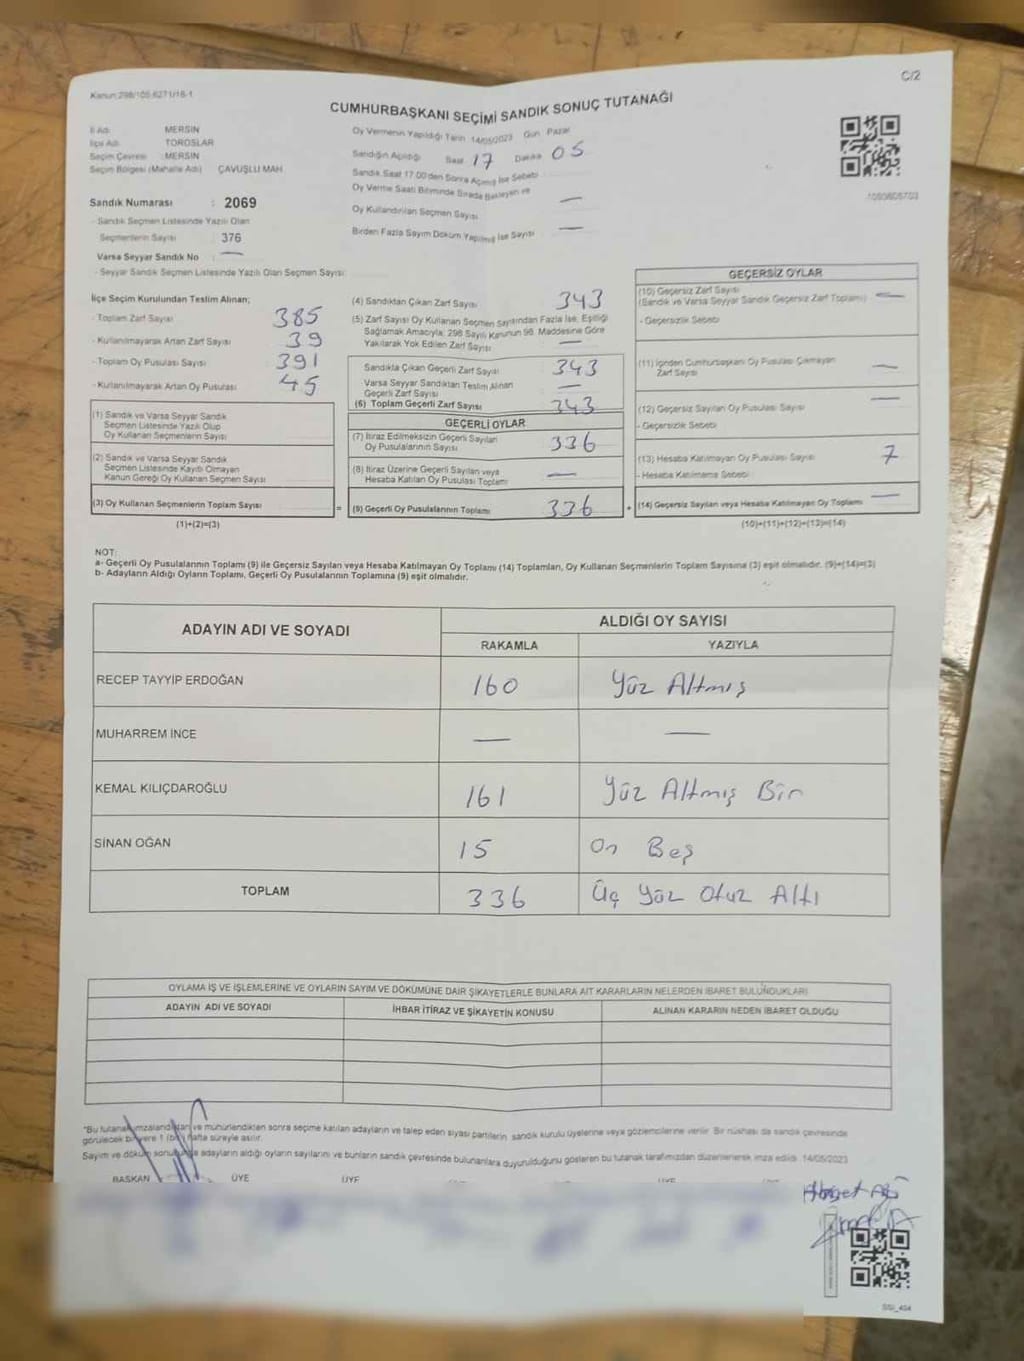 C/2
Kanun:298/105-6271/16-1
CUMHURBAŞKANI SEÇİMİ SANDIK SONUÇ TUTANAĞI
İl Adı : MERSİN
İlçe Adı : TOROSLAR
Seçim Çevresi : MERSİN
Seçim Bölgesi (Mahalle Adı) : ÇAVUŞLU MAH
Sandık Numarası : 2069
- Sandık Seçmen Listesinde Yazılı Olan
Seçmenlerin Sayısı : 376
Varsa Seyyar Sandık No : —
- Seyyar Sandık Seçmen Listesinde Yazılı Olan Seçmen Sayısı:
Oy Vermenin Yapıldığı Tarih 14/05/2023 Gün Pazar
Sandığın Açıldığı Saat 17 Dakika 05
Sandık Saat 17.00'den Sonra Açılmış İse Sebebi
Oy Verme Saati Bitiminde Sırada Bekleyen ve
Oy Kullandırılan Seçmen Sayısı —
Birden Fazla Sayım Döküm Yapılmış İse Sayısı —
1090605703
İlçe Seçim Kurulundan Teslim Alınan;
- Toplam Zarf Sayısı 385
- Kullanılmayarak Artan Zarf Sayısı 39
- Toplam Oy Pusulası Sayısı 391
- Kullanılmayarak Artan Oy Pusulası 45
(1) Sandık ve Varsa Seyyar Sandık
Seçmen Listesinde Yazılı Olup
Oy Kullanan Seçmenlerin Sayısı
(2) Sandık ve Varsa Seyyar Sandık
Seçmen Listesinde Kayıtlı Olmayan
Kanun Gereği Oy Kullanan Seçmen Sayısı
(3) Oy Kullanan Seçmenlerin Toplam Sayısı =
(1)+(2)=(3)
(4) Sandıktan Çıkan Zarf Sayısı 343
(5) Zarf Sayısı Oy Kullanan Seçmen Sayısından Fazla İse, Eşitliği
Sağlamak Amacıyla, 298 Sayılı Kanunun 98. Maddesine Göre
Yakılarak Yok Edilen Zarf Sayısı —
Sandıkta Çıkan Geçerli Zarf Sayısı 343
Varsa Seyyar Sandıktan Teslim Alınan
Geçerli Zarf Sayısı —
(6) Toplam Geçerli Zarf Sayısı 343
GEÇERLİ OYLAR
(7) İtiraz Edilmeksizin Geçerli Sayılan
Oy Pusulalarının Sayısı 336
(8) İtiraz Üzerine Geçerli Sayılan veya
Hesaba Katılan Oy Pusulası Toplamı —
(9) Geçerli Oy Pusulalarının Toplamı 336 +
GEÇERSİZ OYLAR
(10) Geçersiz Zarf Sayısı
(Sandık ve Varsa Seyyar Sandık Geçersiz Zarf Toplamı) —
- Geçersizlik Sebebi
(11) İçinden Cumhurbaşkanı Oy Pusulası Çıkmayan
Zarf Sayısı —
(12) Geçersiz Sayılan Oy Pusulası Sayısı —
- Geçersizlik Sebebi
(13) Hesaba Katılmayan Oy Pusulası Sayısı 7
- Hesaba Katılmama Sebebi
(14) Geçersiz Sayılan veya Hesaba Katılmayan Oy Toplamı —
(10)+(11)+(12)+(13)=(14)
NOT:
a- Geçerli Oy Pusulalarının Toplamı (9) ile Geçersiz Sayılan veya Hesaba Katılmayan Oy Toplamı (14) Toplamları, Oy Kullanan Seçmenlerin Toplam Sayısına (3) eşit olmalıdır. (9)+(14)=(3)
b- Adayların Aldığı Oyların Toplamı, Geçerli Oy Pusulalarının Toplamına (9) eşit olmalıdır.
ADAYIN ADI VE SOYADI ALDIĞI OY SAYISI
RAKAMLA YAZIYLA
RECEP TAYYİP ERDOĞAN 160 Yüz Altmış
MUHARREM İNCE — —
KEMAL KILIÇDAROĞLU 161 Yüz Altmış Bir
SİNAN OĞAN 15 On Beş
TOPLAM 336 Üç Yüz Otuz Altı
OYLAMA İŞ VE İŞLEMLERİNE VE OYLARIN SAYIM VE DÖKÜMÜNE DAİR ŞİKAYETLERLE BUNLARA AİT KARARLARIN NELERDEN İBARET BULUNDUKLARI
ADAYIN ADI VE SOYADI İHBAR İTİRAZ VE ŞİKAYETİN KONUSU ALINAN KARARIN NEDEN İBARET OLDUĞU
*Bu tutanak imzalandıktan ve mühürlendikten sonra seçime katılan adayların ve talep eden siyasi partilerin sandık kurulu üyelerine veya gözlemcilerine verilir. Bir nüshası da sandık çevresinde
görülecek bir yere 1 (bir) hafta süreyle asılır.
Sayım ve döküm sonucunda adayların aldığı oyların sayılarını ve bunların sandık çevresinde bulunanlara duyurulduğunu gösteren bu tutanak tarafımızdan düzenlenerek imza edildi. 14/05/2023
BAŞKAN ÜYE ÜYE ÜYE
SSİ_404